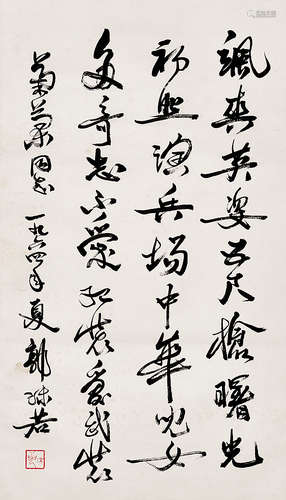 颯爽英姿五尺槍曙光
初照演兵場中華兒女
多奇志不愛紅裝愛武裝
菊同志 一九六四年夏 郭沫若